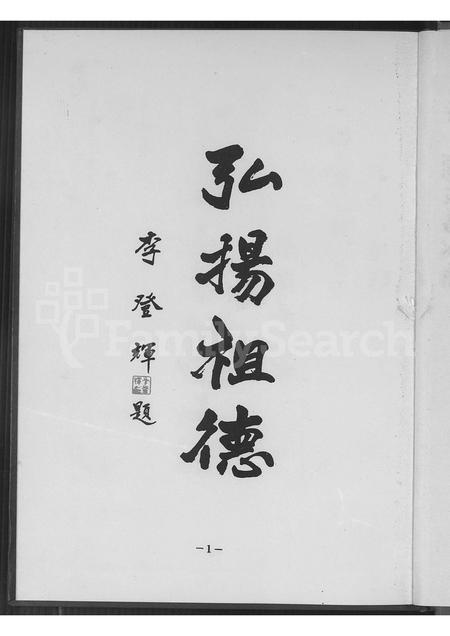 弘揚祖德
李登輝題
-1-
FamilySearch